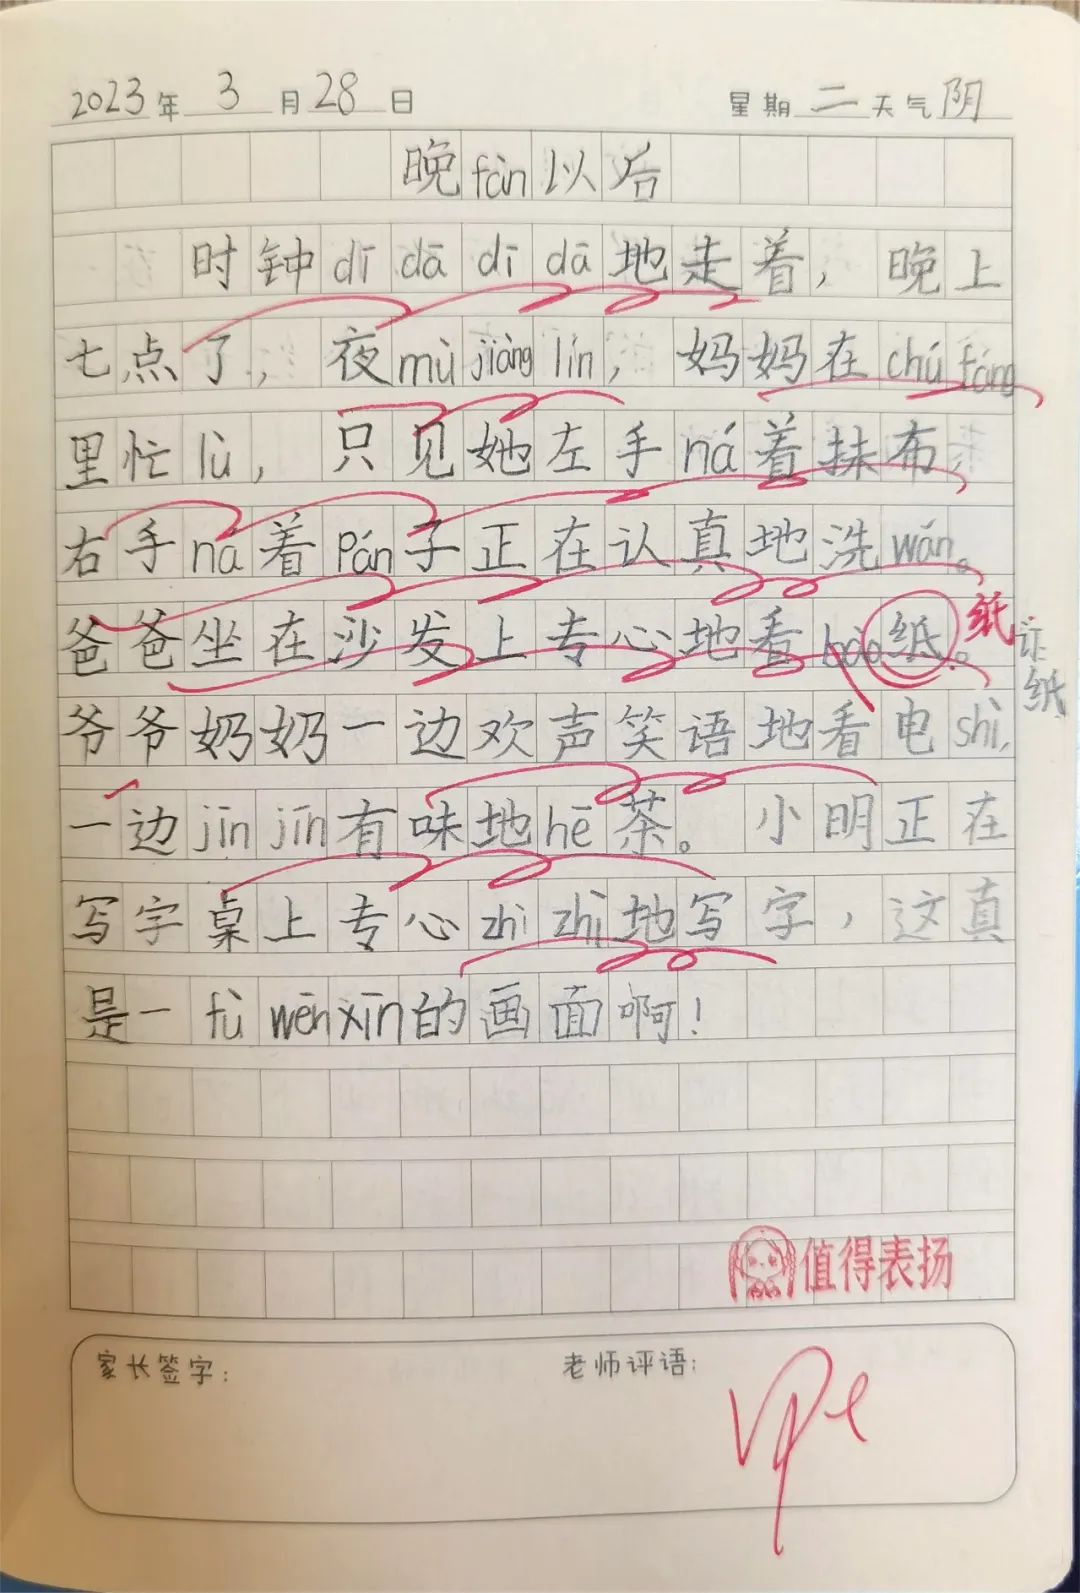 2023年 3 月 28 日 星期 二 天气 阴
晚fàn以后
时钟dī dā dī dā地走着，晚上
七点了，夜mù jiàng lín，妈妈在chú fáng
里忙lù，只见她左手ná着抹布，
右手ná着pán子正在认真地洗wán。
爸爸坐在沙发上专心地看bào纸。纸
订：纸
爷爷奶奶一边欢声笑语地看电shì，
一边jīn jīn有味地hē茶。小明正在
写字桌上专心zhì zhì地写字，这真
是一fù wēn xīn的画面啊！
值得表扬
家长签字： 老师评语：